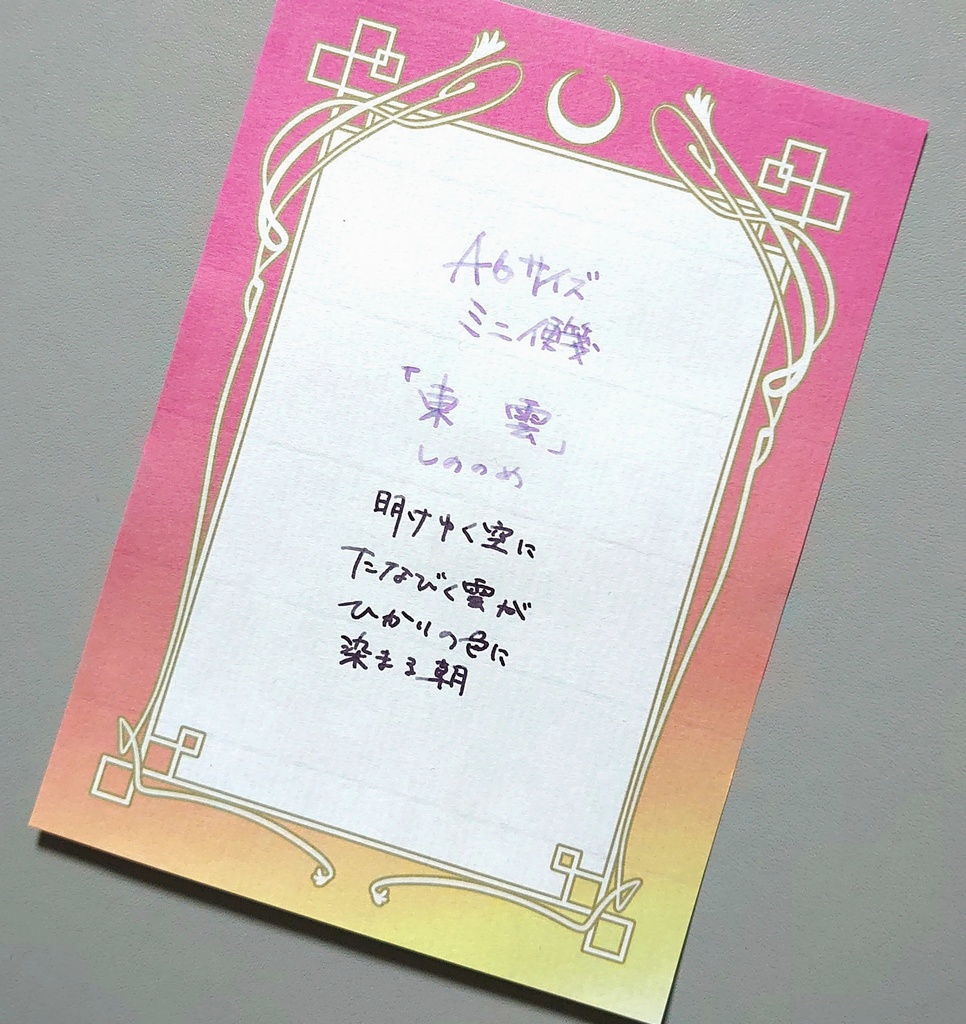 A6サイズ
ミニ便箋
「東 雲」
しののめ
明けゆく空に
たなびく雲が
ひかりの色に
染まる朝